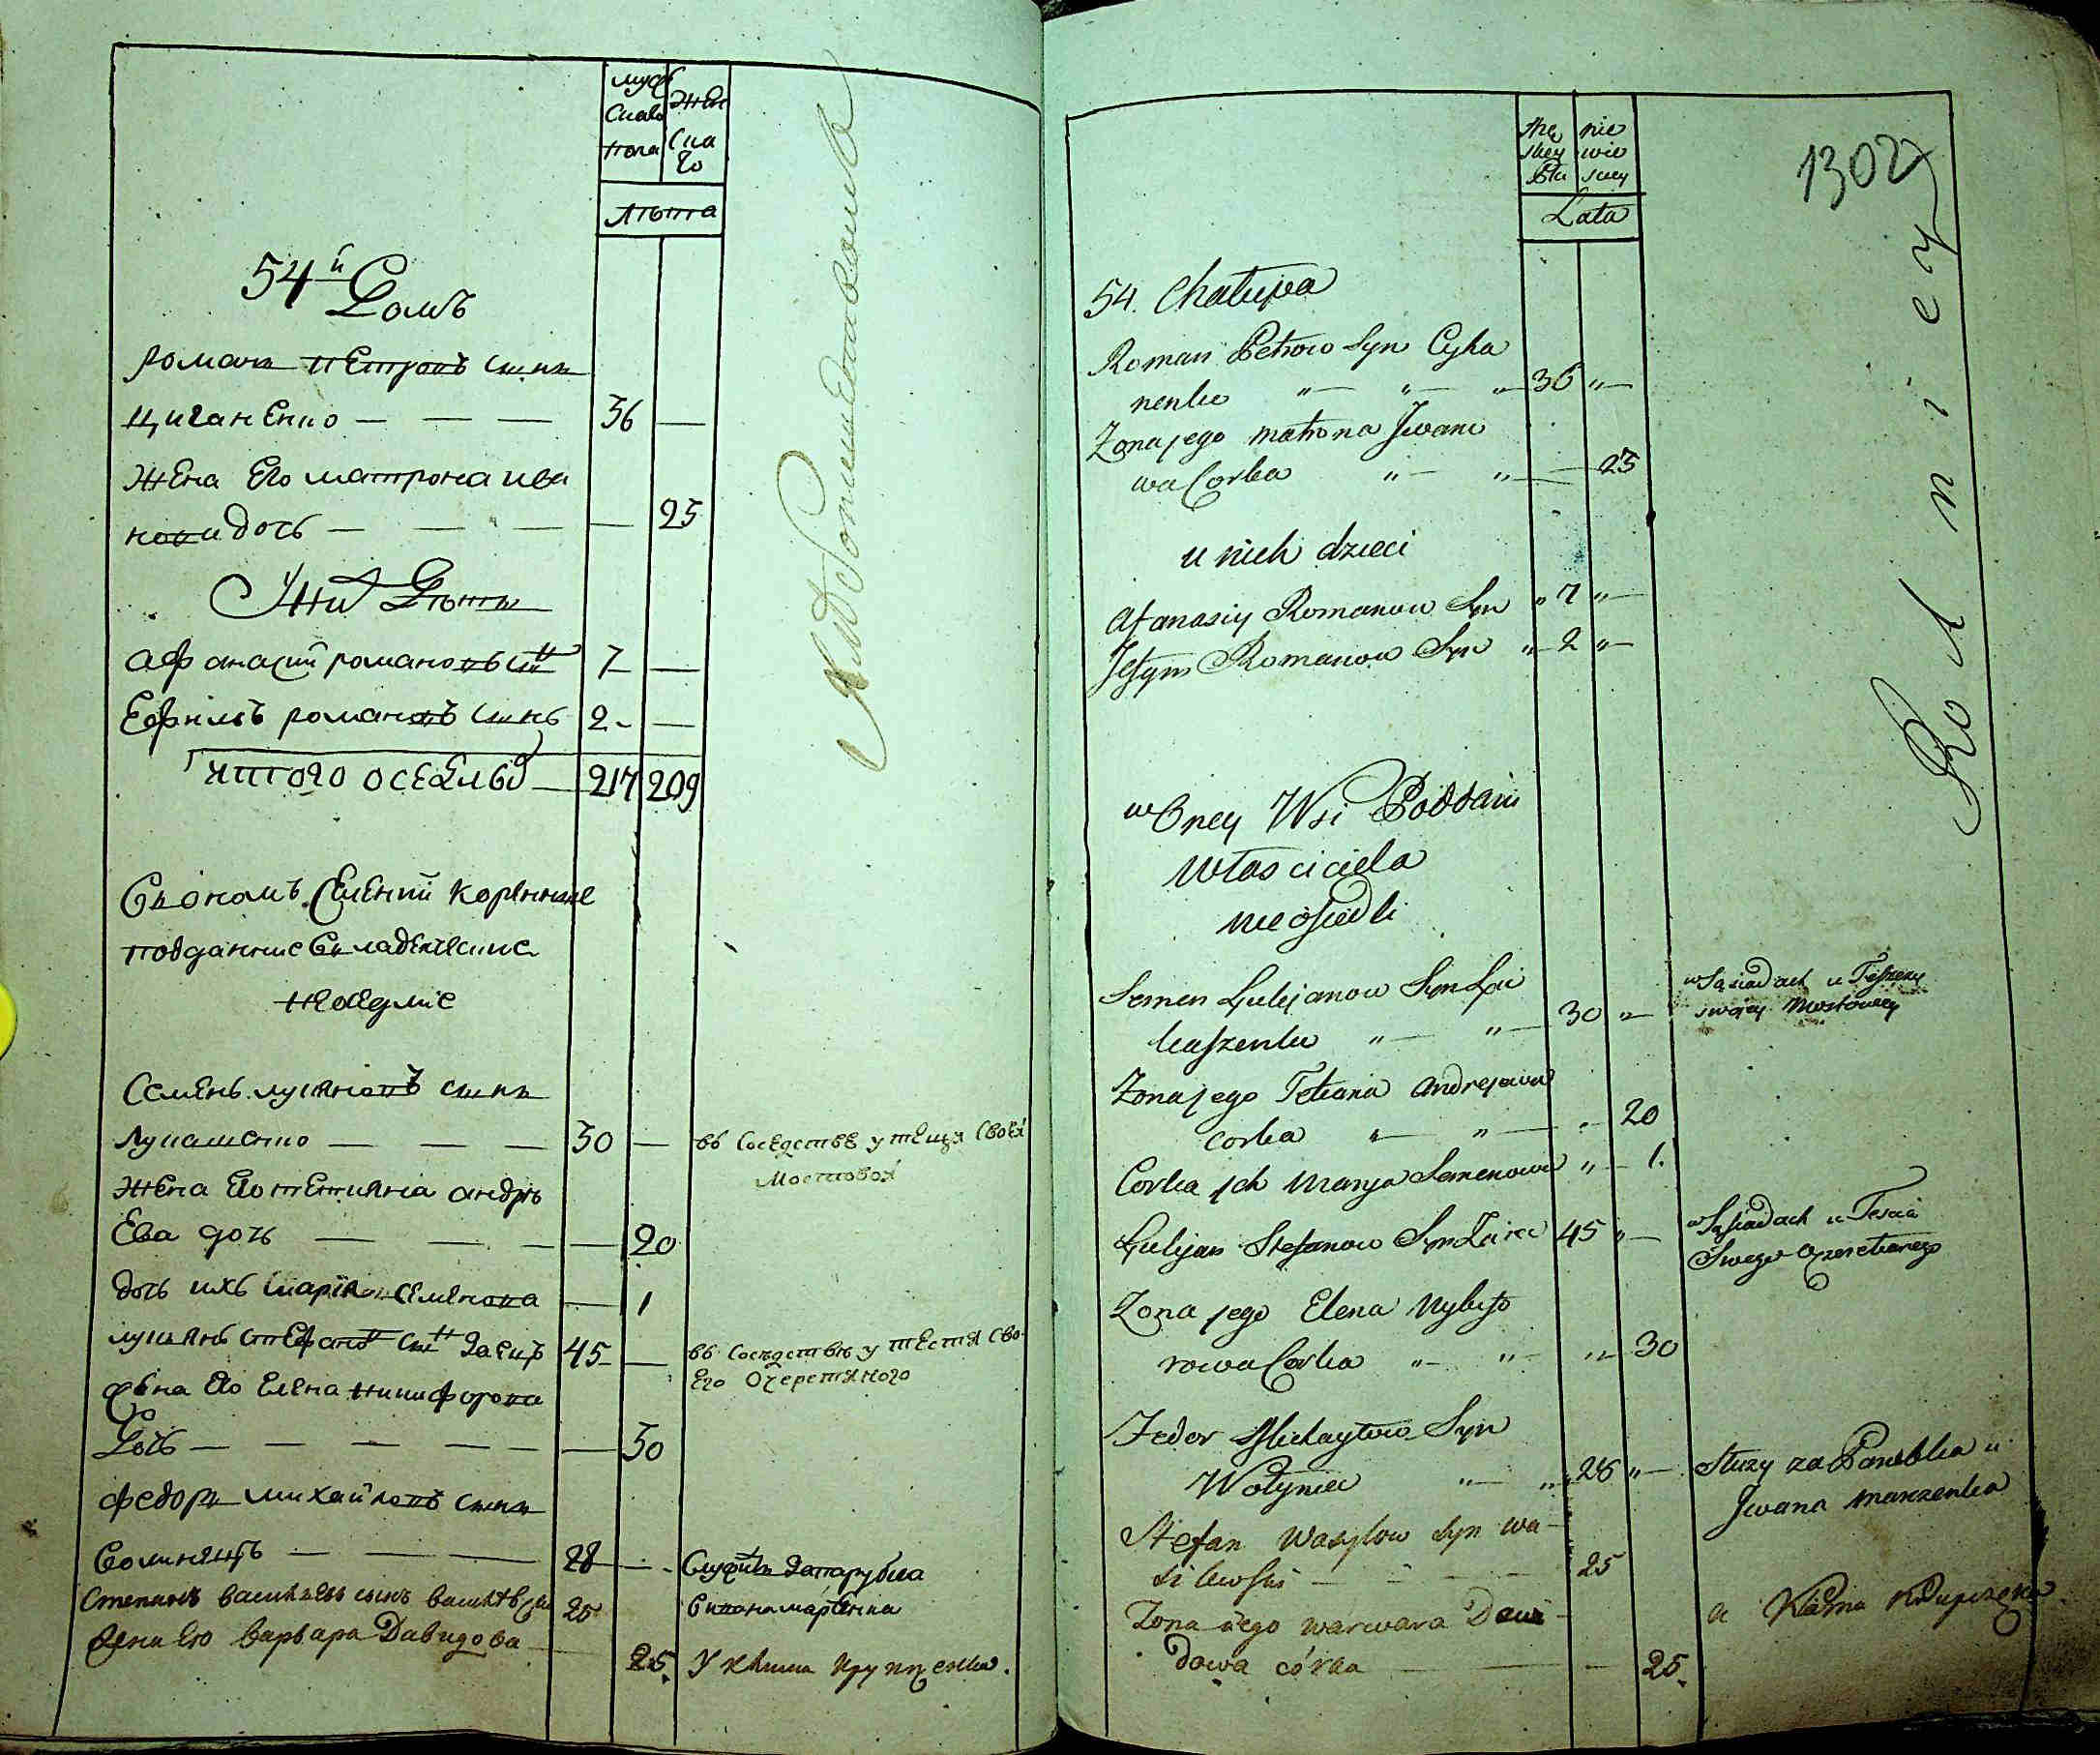 мужскаго пола
женскаго
лѣта
54й Домъ
романъ петровъ сынъ
циганенко — — — 36 —
жена его матрона ива
нова дочь — — — — 25
У них Дѣти
афанасий романовъ снъ 7 —
Ефимъ романовъ сынъ 2 —
итого оседлыхъ — 217 209
подданние владелческие
неоседлие
Семенъ лукяновъ сынъ
лукашенко — — — 30 — въ соседстве у тещи своей
Мостовой
жена его тетияна андрѣ
Ева дочь — — — — 20
дочь ихъ мария семенова — 1
лукянъ стефановъ снъ Заецъ 45 — въ соседствѣ у тестя сво
его Очеретяного
жена его Елена никифорова
Дочь — — — — — — 30
федоръ михайловъ сынъ
Волинецъ — — — 28 — Служитъ за парубка
Степанъ васильевъ сынъ 25 у ивана марченка
жена его варвара Давидова —
25. У клима
1302
Męskey płci
niewieskey
Lata
54. Chałupa
Roman Petrow Syn Cyha
nenko " — " — " — 36 " —
Zona jego matrona Jwano
wa Corka " — " — — 25
u nich dzieci
Afanasiy Romanow Syn " 7 " —
Jefym Romanow Syn " 2 " —
w Oney Wsi Poddani
własciciela
nieosiedli
Semen Łukjanow Syn Łu
kaszenko " — " — 30 " — w Sąsiadach u Teszczy
swojey Mostowey
Zona jego Tetiana Andrejowa
corka " — " — " — 20
Corka jch Marya Semenowa " — 1.
Łukjan Stefanow Syn Zaiec 45 " — w Sąsiadach u Tescia
Swego Oczeretianego
Zona jego Elena Nykifo
rowa Corka " — " — " — 30
Fedor Michayłow Syn
Wołyniec " — " 28 " — Służy za Parobka u
Jwana Marczenka
Stefan Wasylow syn Wa-
silewski — — — — 25
Zona jego warwara Dawi-
dowa córka — — — 25.
u Klima